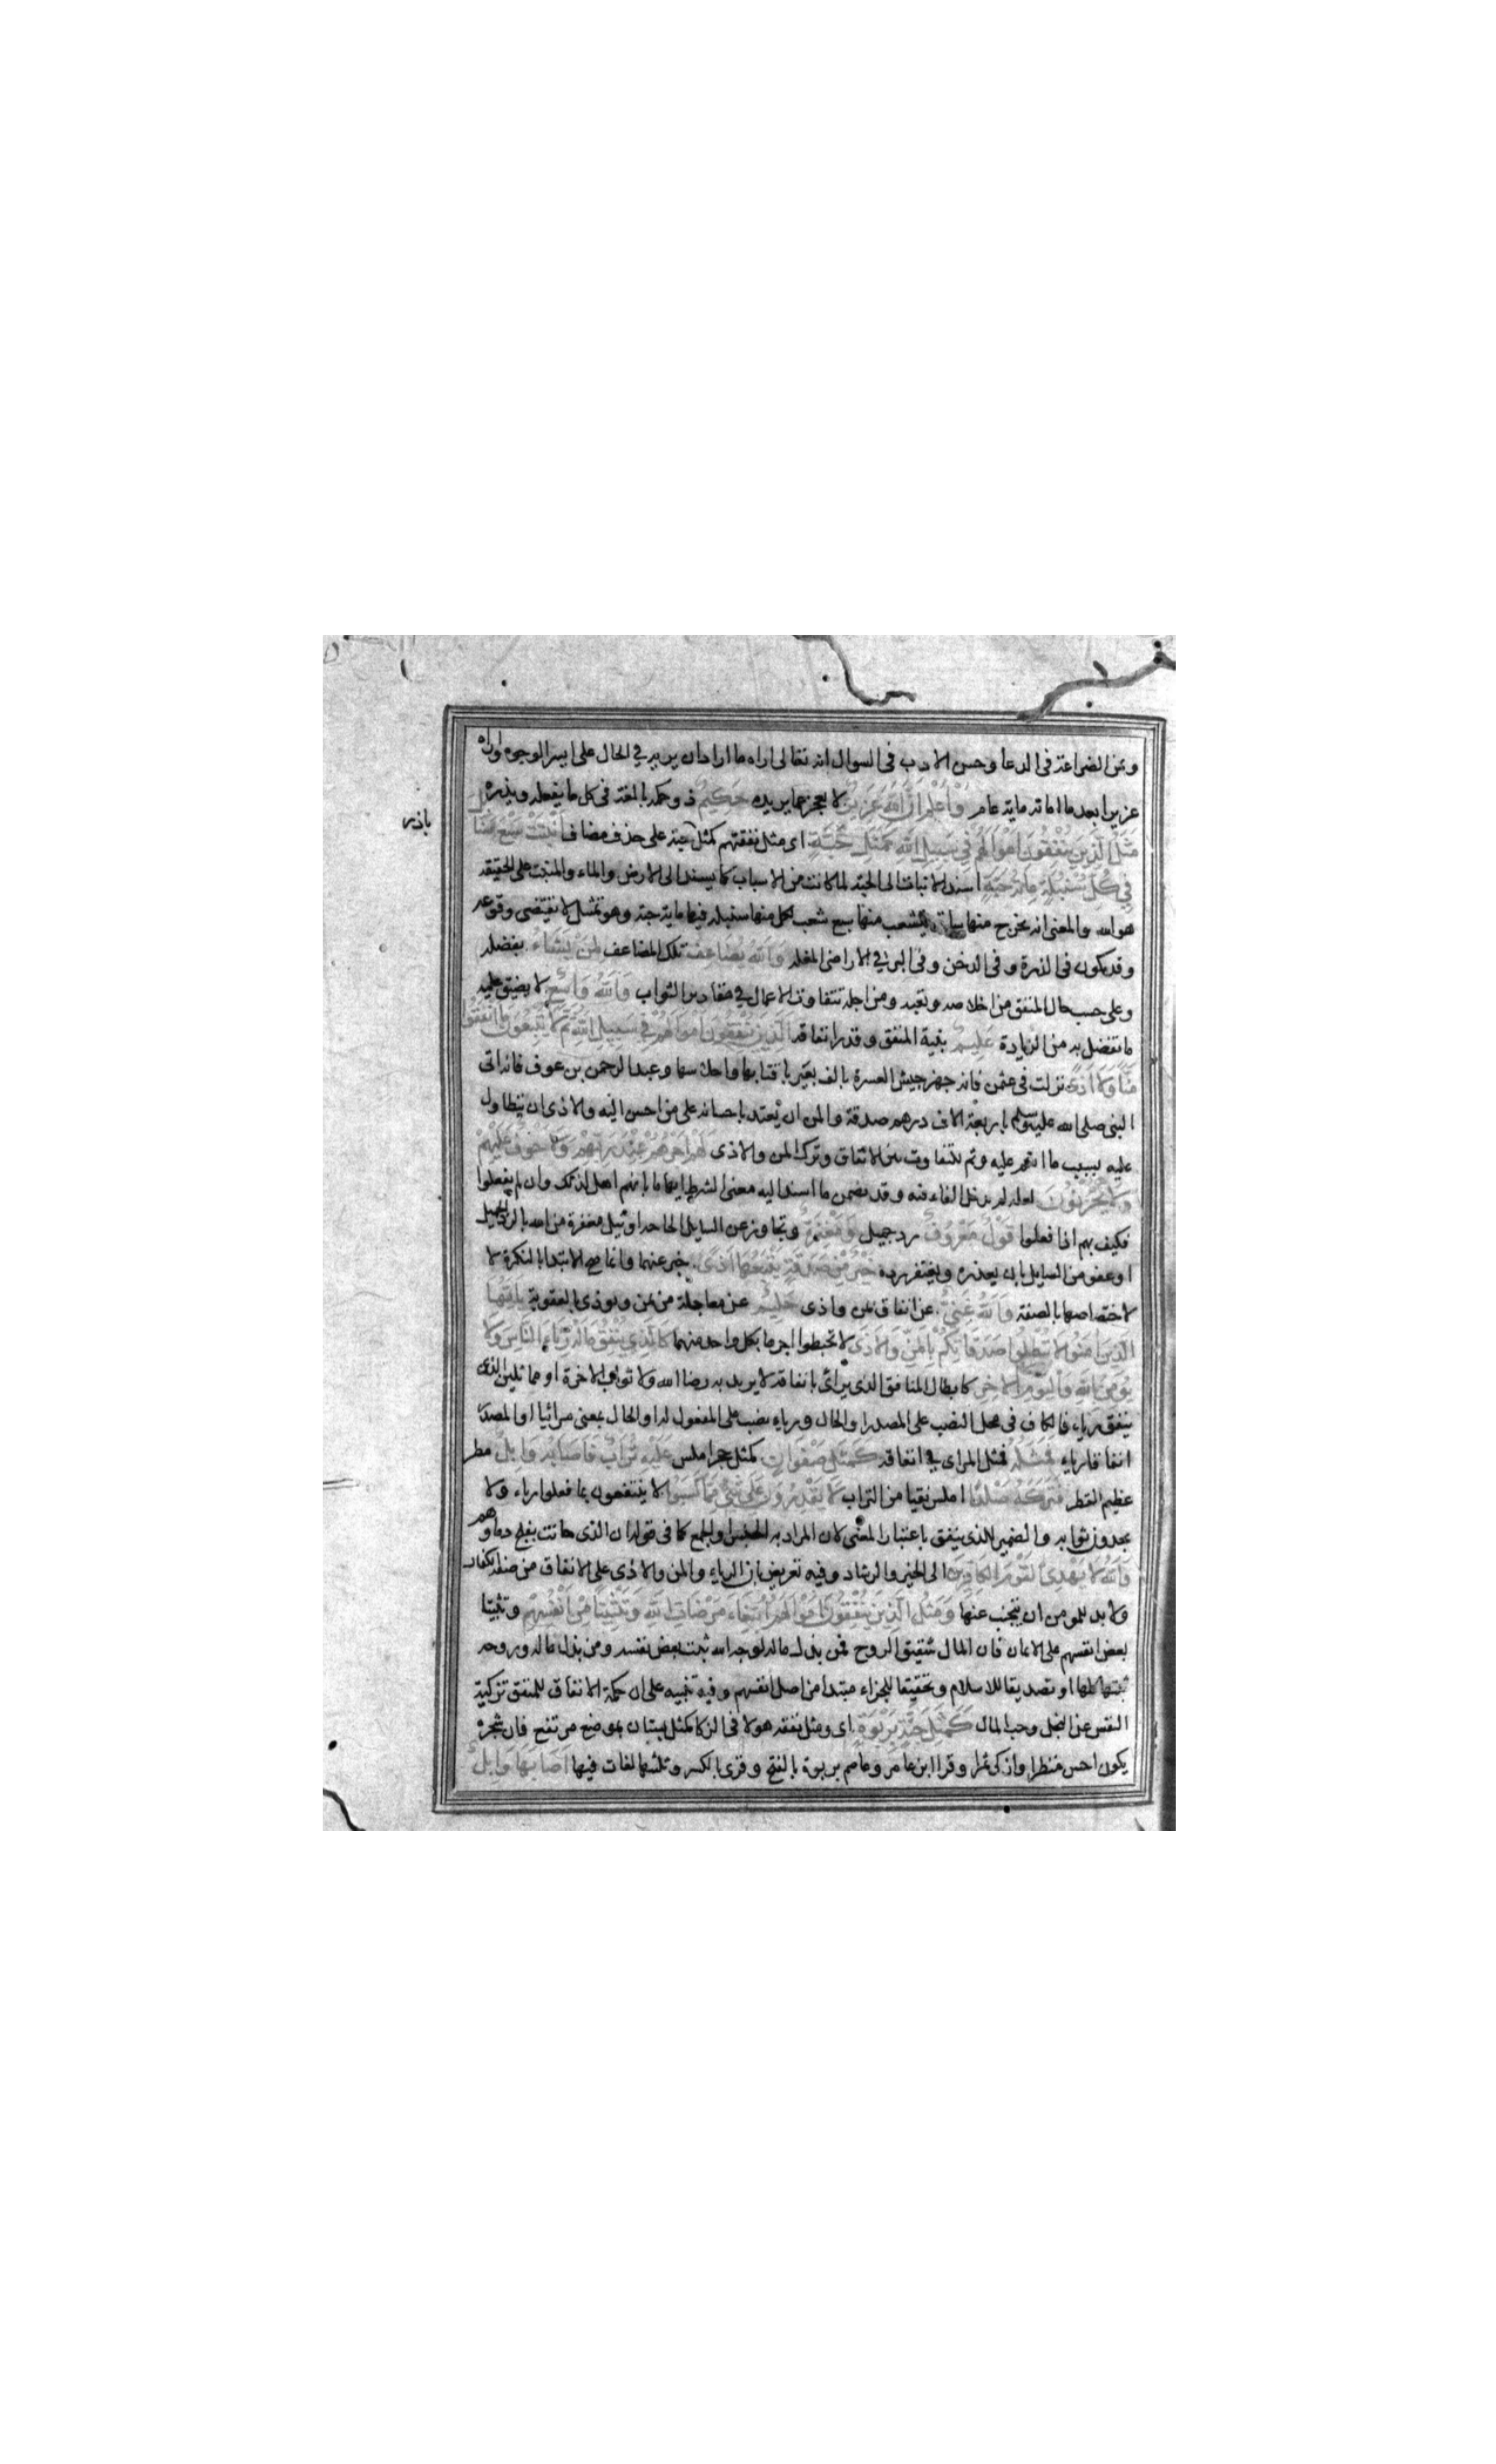 ويمن الضراعة فى الدعا وحسن الادب فى السوال انه تعالى اراه ما اراد ان يريه في الحال على ايسر الوجوه واراه
عزيرا بعد ما اماته ماية عام وَاْعلَمْ اَنَّ اللّٰهَ عَزِيزٌ لا يعجز عما يريده حَكِيمٌ ذو حكمة بالغة فى كل ما يفعله ويذره
باذر
مَثَلُ الَّذِينَ يُنْفِقُونَ اَمْوَالَهُمْ فِي سَبِيلِ اللّٰهِ كَمَثَلِ حَبَّةٍ اى مثل نفقتهم كمثل حبة على حذف مضاف اَنْبَتَتْ سَبْعَ سَنَابِلَ
فِي كُلِّ سُنْبُلَةٍ مِائَةُ حَبَّةٍ اسند الانبات الى الحبة لما كانت من الاسباب كما يسند الى الارض والماء والمنبت على الحقيقة
هو الله والمعنى انه يخرج منها ساق يتشعب منها سبع شعب لكل منها سنبلة فيها ماية حبة وهو تمثيل لا يقتضى وقوعه
وقد يكون فى الذرة وفى الدخن وفى البر في الاراضى المغلة وَاللّٰهُ يُضَاعِفُ تلك المضاعف لِمَنْ يَشَاءُ بفضله
وعلى حسب حال المنفق من اخلاصه وتعبه ومن اجله تتفاوت الاعمال في مقادير الثواب وَاللّٰهُ وَاسِعٌ لا يضيق عليه
ما تفضل به من الزيادة عَلِيمٌ بنية المنفق وقدر انفاقه اَلَّذِينَ يُنْفِقُونَ اَمْوَالَهُمْ فِي سَبِيلِ اللّٰهِ ثُمَّ لَا يُتْبِعُونَ مَا اَنْفَقُوا
مَنًّا وَلَا اَذًى نزلت فى عثمن فانه جهز جيش العسرة بالف بعير باقتابها واحلاسها وعبد الرحمن بن عوف فانه اتى
النبى صلى الله عليه وسلم باربعة الاف درهم صدقة والمن ان يعتد باحسانه على من احسن اليه والاذى ان يتطاول
عليه بسبب ما انعم عليه وثم للتفاوت بين الانفاق وترك المن والاذى لَهُمْ اَجْرُهُمْ عِنْدَ رَبِّهِمْ وَلَا خَوْفٌ عَلَيْهِمْ
وَلَا هُمْ يَحْزَنُونَ لعله لم يدخل الفاء فيه وقد تضمن ما اسند اليه معنى الشرط ايهاما بانهم اهل لذلك وان لم يفعلوا
فكيف بهم اذا فعلوا قَوْلٌ مَعْرُوفٌ رد جميل وَمَغْفِرَةٌ وتجاوز عن السايل الحاحه او نيل مغفرة من الله بالرد الجميل
او عفو من السايل بان يعذره ويغتفر رده خَيْرٌ مِنْ صَدَقَةٍ يَتْبَعُهَا اَذًى خبر عنهما وانما صح الابتدا بالنكرة لا
لاختصاصها بالصفة وَاللّٰهُ غَنِيٌّ عن انفاق بمن واذى حَلِيمٌ عن معاجلة من يمن ويوذى بالعقوبة يَا اَيُّهَا
الَّذِينَ اٰمَنُوا لَا تُبْطِلُوا صَدَقَاتِكُمْ بِالْمَنِّ وَالْاَذَى لا تحبطوا اجرها بكل واحد منهما كَالَّذِي يُنْفِقُ مَالَهُ رِئَاءَ النَّاسِ وَلَا
يُؤْمِنُ بِاللّٰهِ وَالْيَوْمِ الْاٰخِرِ كابطال المنافق الذى يرائى بانفاقه لا يريد به رضا الله ولا ثواب الاخرة او مماثلين الذى
ينفق رياء فالكاف فى محل النصب على المصدر او الحال ورياء نصب على المفعول له او الحال بمعنى مرائيا او المصدر
انفاقا رياء فَمَثَلُهُ فمثل المراى في انفاقه كَمَثَلِ صَفْوَانٍ كمثل حجر املس عَلَيْهِ تُرَابٌ فَاَصَابَهُ وَابِلٌ مطر
عظيم القطر فَتَرَكَهُ صَلْدًا املس نقيا من التراب لَا يَقْدِرُونَ عَلَى شَيْءٍ مِمَّا كَسَبُوا لا ينتفعون بما فعلوا رياء ولا
يجدون ثوابه والضمير للذى ينفق باعتبار المعنى لان المراد به الجنس او الجمع كما فى قوله ان الذى حانت بفلج دماوهم
وَاللّٰهُ لَا يَهْدِي الْقَوْمَ الْكَافِرِينَ الى الخير والرشاد وفيه تعريض بان الرياء والمن والاذى على الانفاق من صفة الكفار
ولا بد للمومن ان يتجنب عنها وَمَثَلُ الَّذِينَ يُنْفِقُونَ اَمْوَالَهُمُ ابْتِغَاءَ مَرْضَاتِ اللّٰهِ وَتَثْبِيتًا مِنْ اَنْفُسِهِمْ وتثبيتا
بعض انفسهم على الايمان فان المال شقيق الروح فمن بذل ماله لوجه الله ثبت بعض نفسه ومن بذل ماله وروحه
ثبتها كلها او تصديقا للاسلام وتحقيقا للجزاء مبتدا من اصل انفسهم وفيه تنبيه على ان حكمة الانفاق للمنفق تزكية
النفس عن البخل وحب المال كَمَثَلِ جَنَّةٍ بِرَبْوَةٍ اى ومثل نفقة هولا فى الزكا كمثل بستان بموضع مرتفع فان شجره
يكون احسن منظرا وازكى ثمرا وقرا ابن عامر وعاصم بربوة بالفتح وقرى بالكسر وثلثها لغات فيها اَصَابَهَا وَابِلٌ